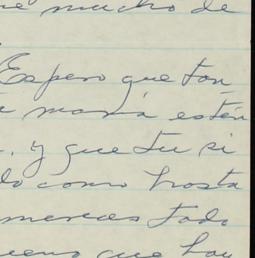 me mucho de
Espero que tan
mamá estén
y que tu si
do como hasta
mereces todo
bueno que hay